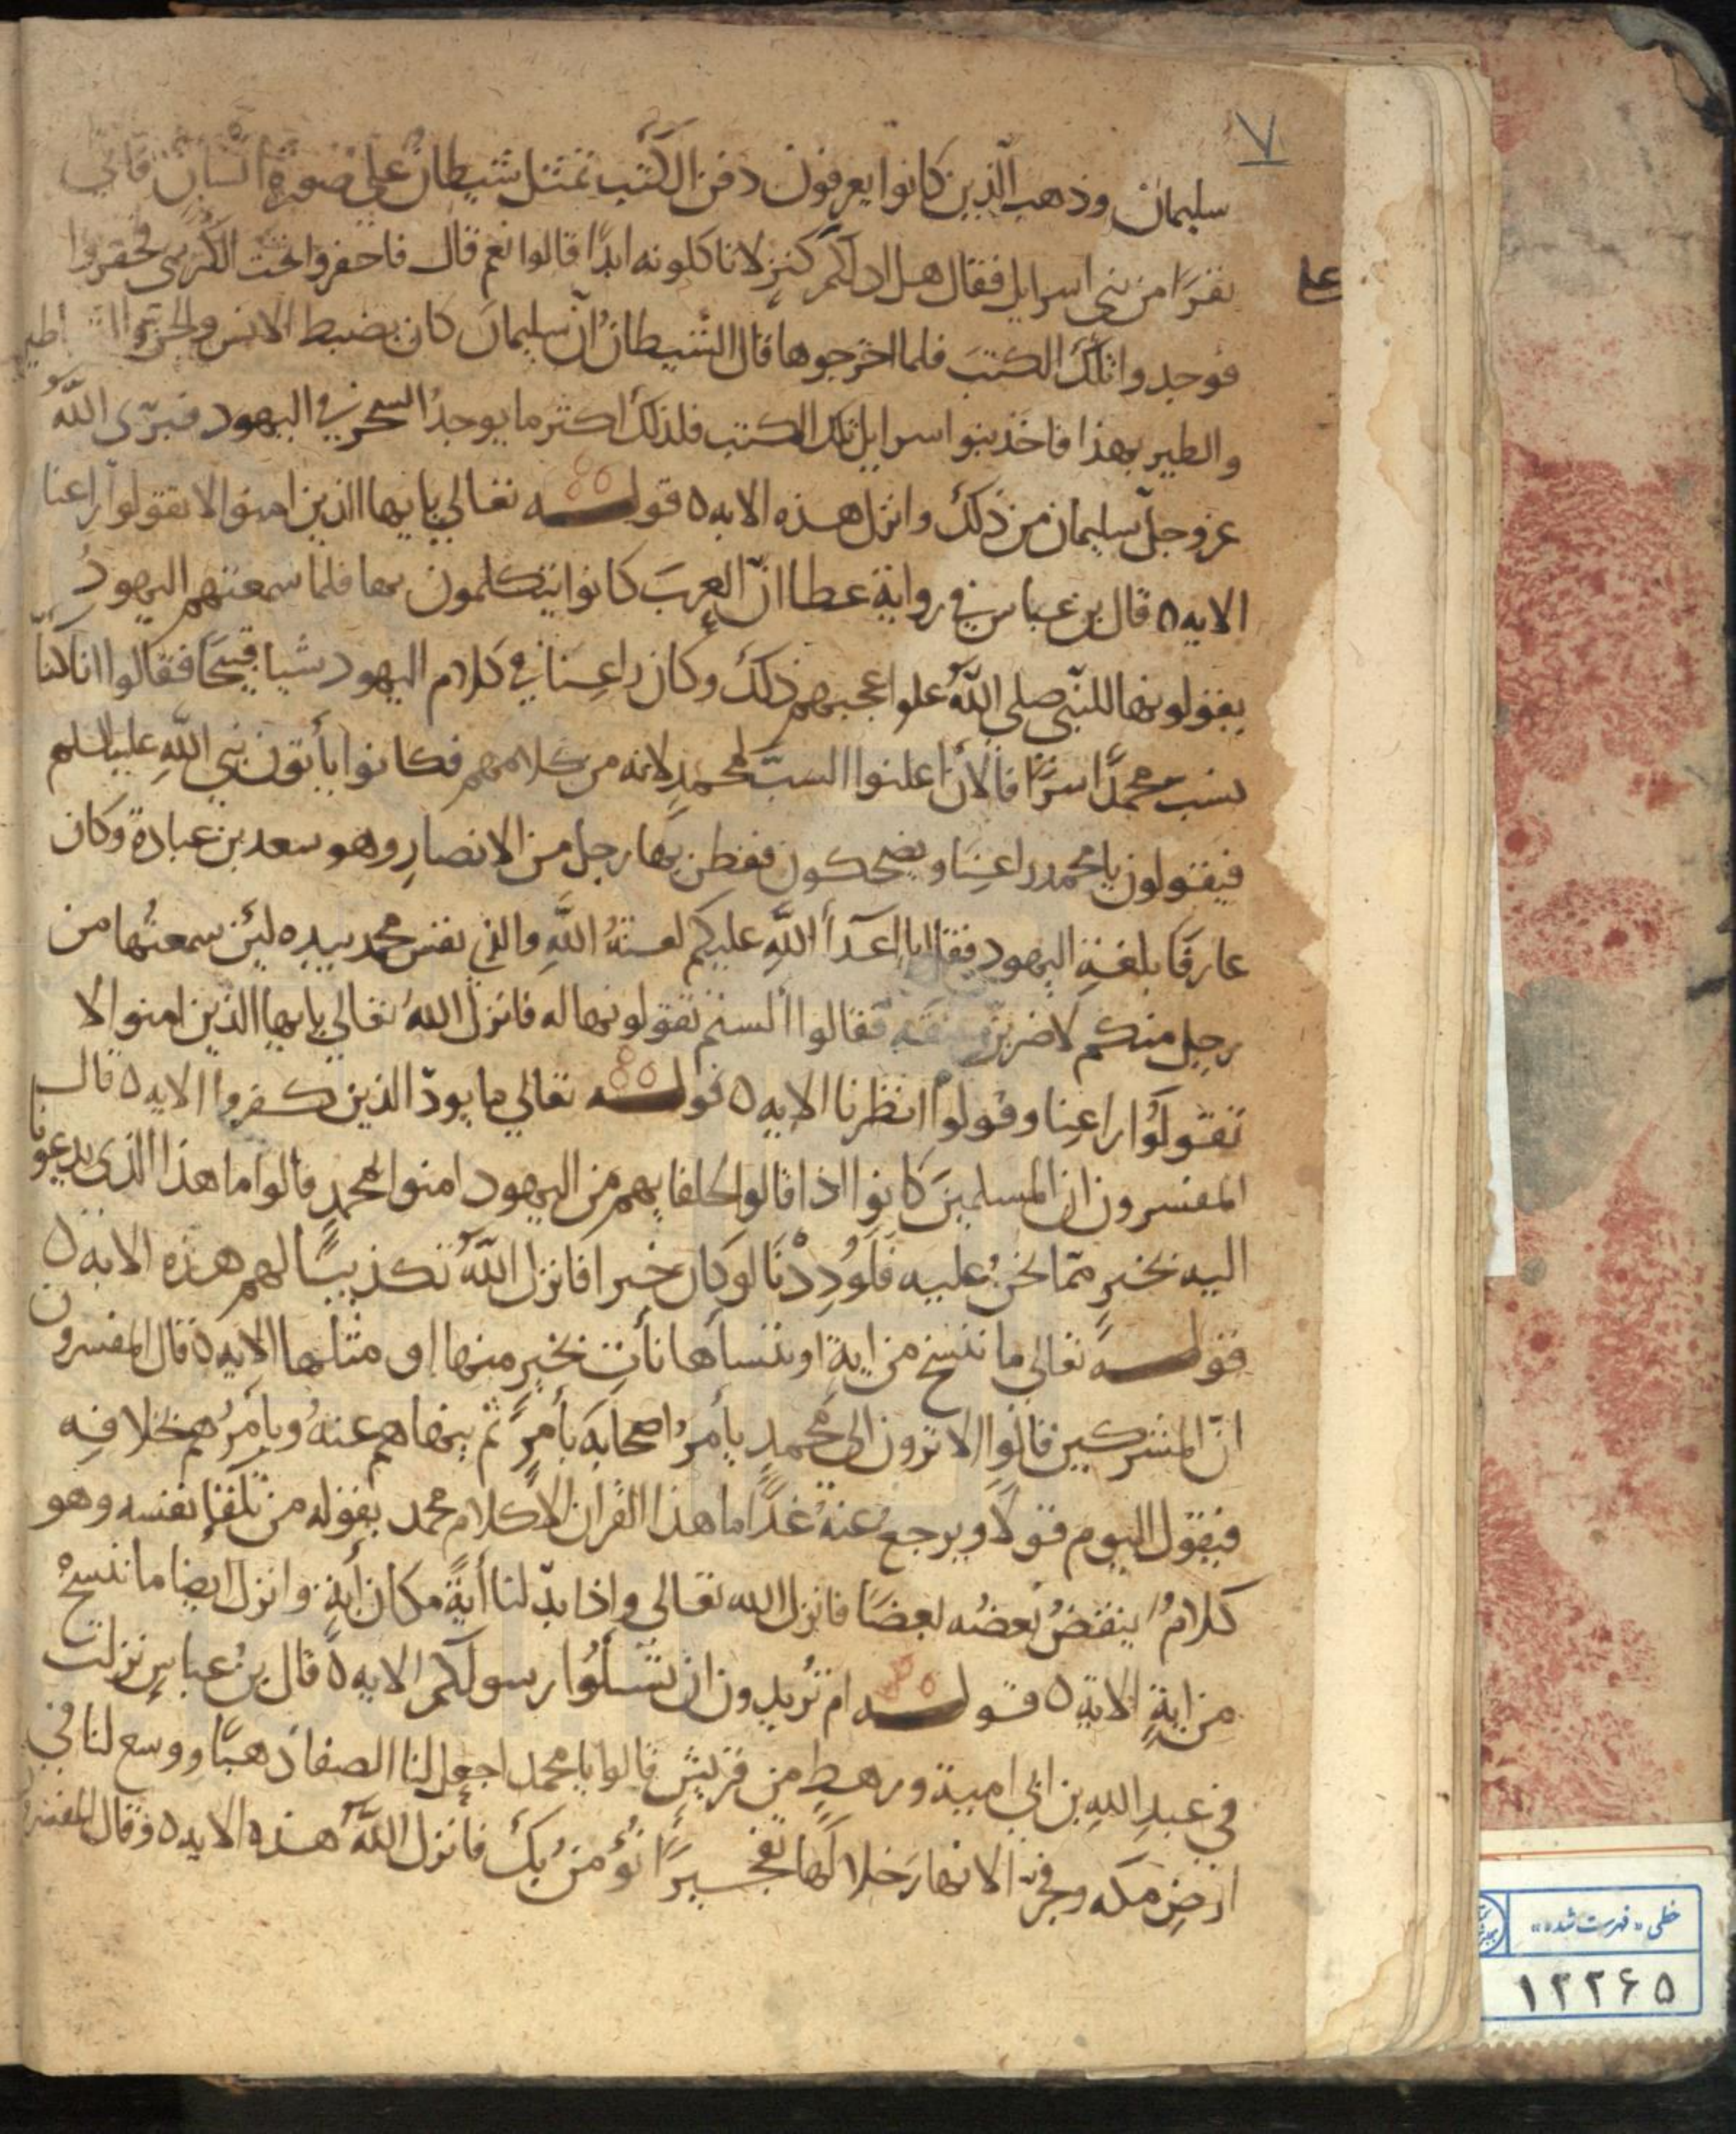 ٧
سليمان وذهب الّذين كانوا يعرفون دفن الكتب تمثل شيطان على صورة انسان فاتى
نفرًا من بنى اسرايل فقال هل ادلكم كنز لا تاكلونه ابدًا قالوا نعم قال فاحفروا تحت الكرسى فحفروا
على
فوجدوا تلك الكتب فلما اخرجوها قال الشيطان انّ سليمان كان يضبط الانس والجن والشياطين
والطير بهذا فاخذ بنوا اسرايل تلك الكتب فلذلك اكثر ما يوجد السحر فى اليهود فبرّى اللّه
عز وجلّ سليمان من ذلك وانزل هذه الايه ٥ قوله تعالي يا يها الذين امنوا لا تقولوا راعنا
الايه ٥ قال بن عباس في رواية عطا انّ العرب كانوا يتكلمون بها فلما سمعتهم اليهود
يقولونها للنبّي صلى اللّه علو اعجبهم ذلك وكان راعنا في كلام اليهود شيا قبيحًا فقالوا انا كنّا
نسب محمدًا سرًا فالان اعلنوا السبّ لمحمدٍ لانه من كلامهم فكانوا يأتون نبي اللّه عليه السلم
فيقولون يا محمد راعنا ويضحكون ففطن بها رجل من الانصار وهو سعد بن عبادة وكان
عارفًا بلغة اليهود فقال يا اعدآ اللّه عليكم لعنةُ اللّه والذي نفس محمد بيده لئن سمعتُها من
رجل منكم لاضربنّ عنقه فقالوا ألستم تقولونها له فانزل اللّه تعالي يا يها الذين امنوا لا
تقولوُا راعنا وقولوا انظرنا الايه ٥ قوله تعالي ما يودّ الذين كفروا الايه ٥ قال
المفسرون ان المسلمين كانوا اذا قالوا لحلفايهم من اليهود امنوا بمحمدٍ قالوا ما هذا الذى يدعونا
اليه بخير ممّا نحن عليه فلوددْنا لو كان خيرا فانزل اللّه تكذيبًا لهم هذه الايه ٥
قوله تعالي ما ننسخ من اية او ننسأها نأتِ بخيرٍ منها او مثلها الايه ٥ قال المفسرون
انّ المشركين قالوا الا ترون الى محمدٍ يأمرُ اصحابه بأمرٍ ثم ينهاهم عنهُ ويأمرُهم بخلافِه
فيقول اليوم قولًا ويرجع عنهُ غدًا ما هذا القرآن الا كلام محمد يقوله من تلقإ نفسه وهو
كلامُ ينقضُ بعضُه بعضًا فانزل الله تعالي واذا بدّلنا أيةً مكان أيةٍ وانزل ايضا ما ننسخْ
من ايةٍ الاية ٥ قوله ام تُريدون ان تسلوُا رسولكم الايه ٥ قال بنُ عباسٍ نزلت
في عبدِ اللهِ بن ابي امية ورهطٍ من قريش قالوا يا محمد اجعل لنا الصفا ذهبًا ووسع لنا في
ارضِ مكه وفجرّ الانهار خلالها تفجيرًا نؤمنُ بك فانزل اللّه هذه الايه ٥ وقال المفسرون
خطی «فهرست شده»
١٢٢۶۵